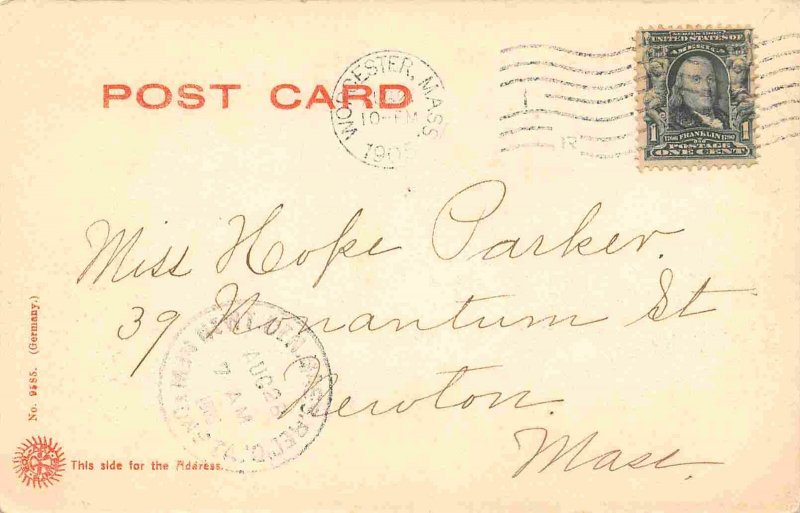 POST CARD
WORCESTER, MASS
10-PM
1905
SERIES 1902
UNITED STATES OF
AMERICA
1 FRANKLIN 1
POSTAGE
ONE CENT
Miss Hope Parker.
39 Nonantum St
Newton.
Mass.
AUG 26
7 AM
REC'D.
No. 9585. (Germany.)
This side for the Address.